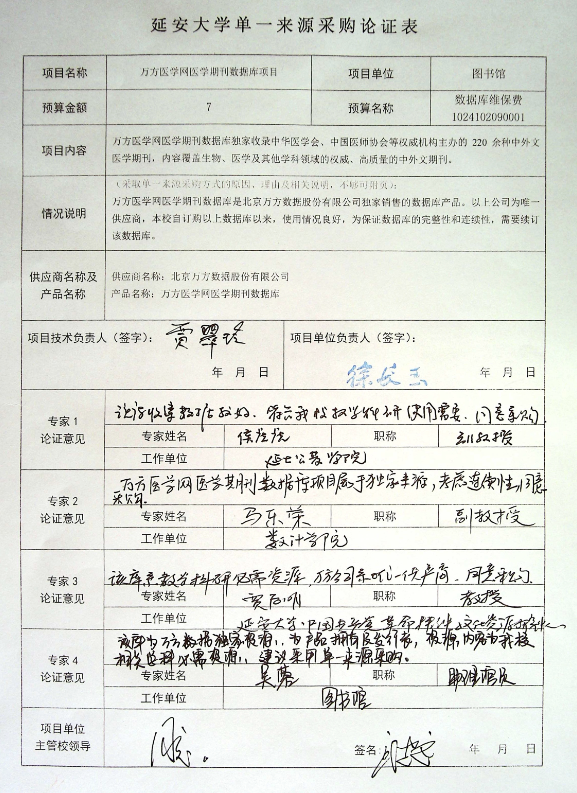 延安大学单一来源采购论证表
项目名称 万方医学网医学期刊数据库项目 项目单位 图书馆
预算金额 7 预算名称 数据库维保费
1024102090001
项目内容 万方医学网医学期刊数据库独家收录中华医学会、中国医师协会等权威机构主办的 220 余种中外文
医学期刊，内容覆盖生物、医学及其他学科领域的权威、高质量的中外文期刊。
情况说明 （采取单一来源采购方式的原因、理由及相关说明，不够可附页）：
万方医学网医学期刊数据库是北京万方数据股份有限公司独家销售的数据库产品。以上公司为唯一
供应商，本校自订购以上数据库以来，使用情况良好，为保证数据库的完整性和连续性，需要续订
该数据库。
供应商名称及
产品名称
供应商名称：北京万方数据股份有限公司
产品名称：万方医学网医学期刊数据库
项目技术负责人（签字）： 贾翠玲 项目单位负责人（签字）：
年 月 日 年 月 日
专家 1
论证意见
同意采购
专家姓名 职称 副教授
工作单位 学院
专家 2
论证意见
万方医学网医学期刊数据库项目属于独家来源，考虑连续性，同意
采购。
专家姓名 马乐荣 职称 副教授
工作单位 数计学院
专家 3
论证意见
该库系教学科研必需资源，万方公司系唯一供应商，同意采购
专家姓名 职称 教授
工作单位 延安大学
专家 4
论证意见
建议采用单一来源采购。
吴蓉
专家姓名 职称 助理馆员
工作单位 图书馆
项目单位
主管校领导
签名： 年 月 日